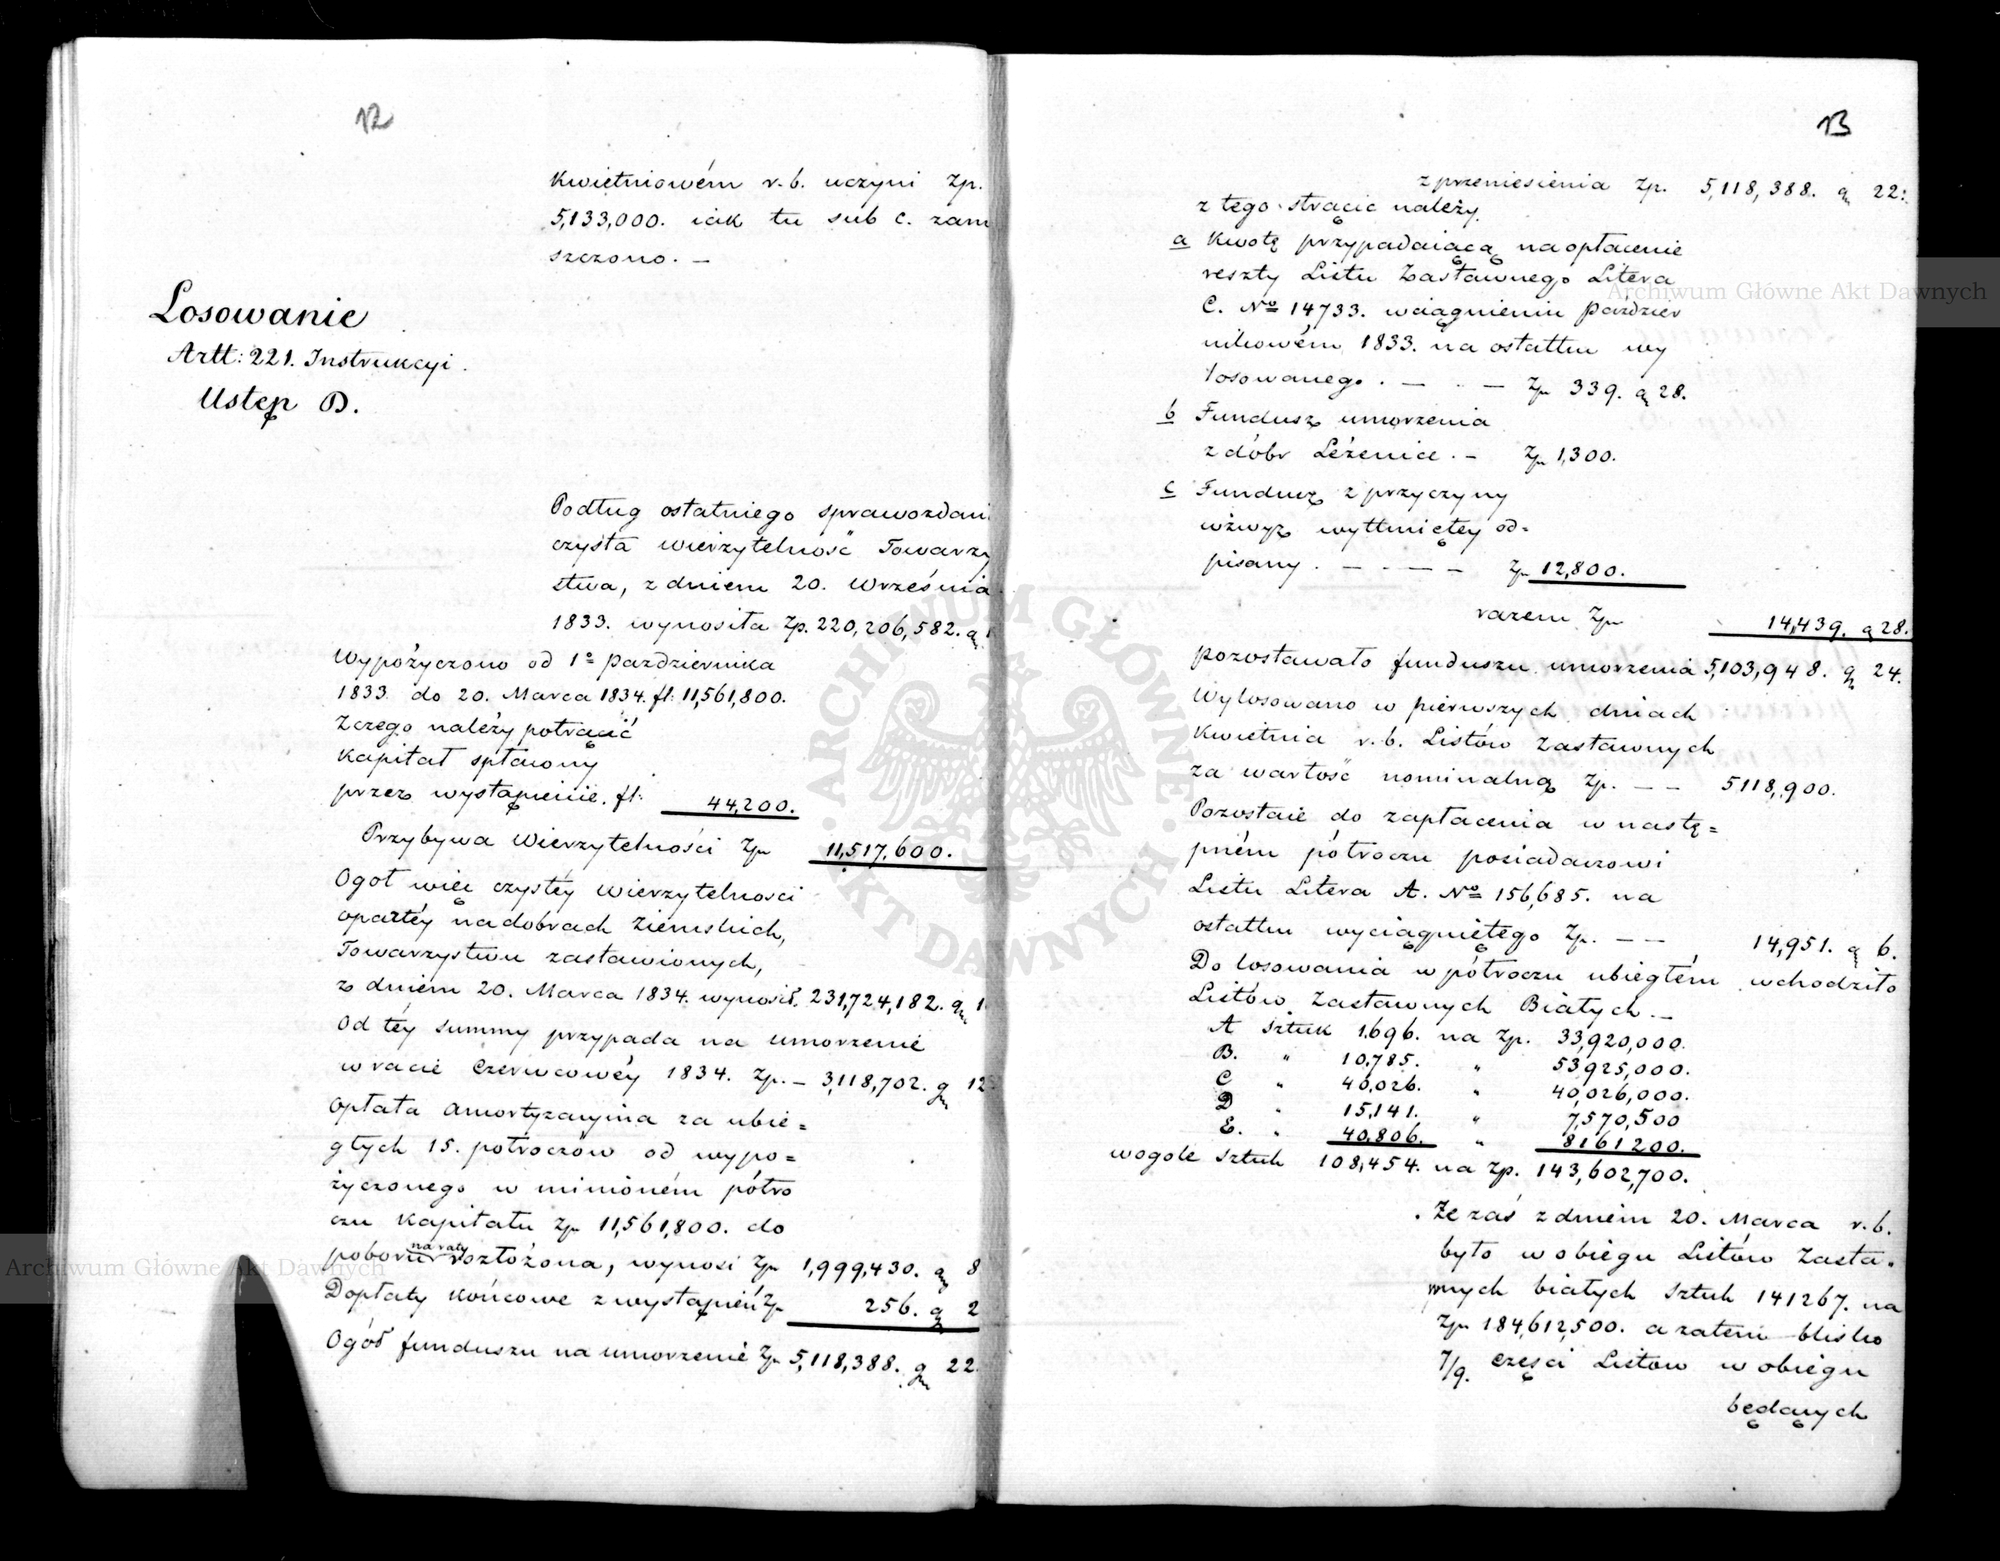 12
Kwietniowém r.b. uczyni Zp.
5,133,000. iak tu sub c. zam
szczono. —
Losowanie
Artt: 221. Instrukcyi.
Ustęp D.
Podług ostatniego sprawozdani
czysta wierzytelność Towarzy
stwa, z dniem 20. Września
1833. wynosiła Zp. 220,206,582. g
Wypożyczono od 1º Października
1833. do 20. Marca 1834. fl: 11,561,800.
Z czego należy potrącić
Kapitał spłacony
przez wystąpienie. fl: 44,200.
Przybywa Wierzytelności Zp 11,517,600.
Ogół więc czystéy Wierzytelności
opartéy na dobrach Ziemskich,
Towarzystwu zastawionych,
z dniem 20. Marca 1834. wynosił. 231,724,182. g 1
Od téy summy przypada na umorzenie
w racie Czerwcowéy 1834. Zp. — 3,118,702. g 12
Opłata Amortyzacyina za ubie=
głych 15. półroczów od wypo=
życzonego w minioném półro
czu Kapitału Zp 11,561,800. do
poboru na raty rozłożona, wynosi Zp 1,999,430. g 8
Dopłaty Końcowe z wystąpień Zp 256. g 2
Ogół funduszu na umorzenie Zp 5,118,388. g 22.
13
z przeniesienia Zp. 5,118,388. g 22:
z tego strącić należy.
a Kwotę przypadaiącą na opłacenie
reszty Listu Zastawnego Litera
C. Nº 14733. w ciągnieniu Paździer
nikowém 1833. na ostatku wy
losowanego. — . — Zp 339. g 28.
b Fundusz umorzenia
z dóbr Leżenice. — Zp 1,300.
c Fundusz z przyczyny
wżwyż wytkniętey od=
pisany. — . — — Zp 12,800.
razem Zp 14,439. g 28.
pozostawało funduszu umorzenia 5,103,948. g 24.
Wylosowano w pierwszych dniach
Kwietnia r.b. Listów Zastawnych
za wartość nominalną Zp. — — 5118,900.
Pozostaie do zapłacenia w nastę=
pném półroczu posiadaczowi
Listu Litera A. Nº 156,685. na
ostatku wyciągniętego Zp. — — 14,951. g 6.
Do losowania w półroczu ubiegłém wchodziło
Listów Zastawnych Białych. —
A Sztuk 1.696. na Zp. 33,920,000.
B. " 10,785. " 53,925,000.
C " 40,026. " 40,026,000.
D " 15,141. " 7,570,500
E. " 40,806. " 8161200.
wogole Sztuk 108,454. na Zp. 143,602,700.
Że zaś z dniem 20. Marca r.b.
było w obiegu Listów Zasta.
wnych białych Sztuk 141267. na
Zp 184,612,500. a zatem blisko
7/9. części Listów w obiegu
będących
Archiwum Główne Akt Dawnych
ARCHIWUM GŁÓWNE
AKT DAWNYCH
Archiwum Główne Akt Dawnych